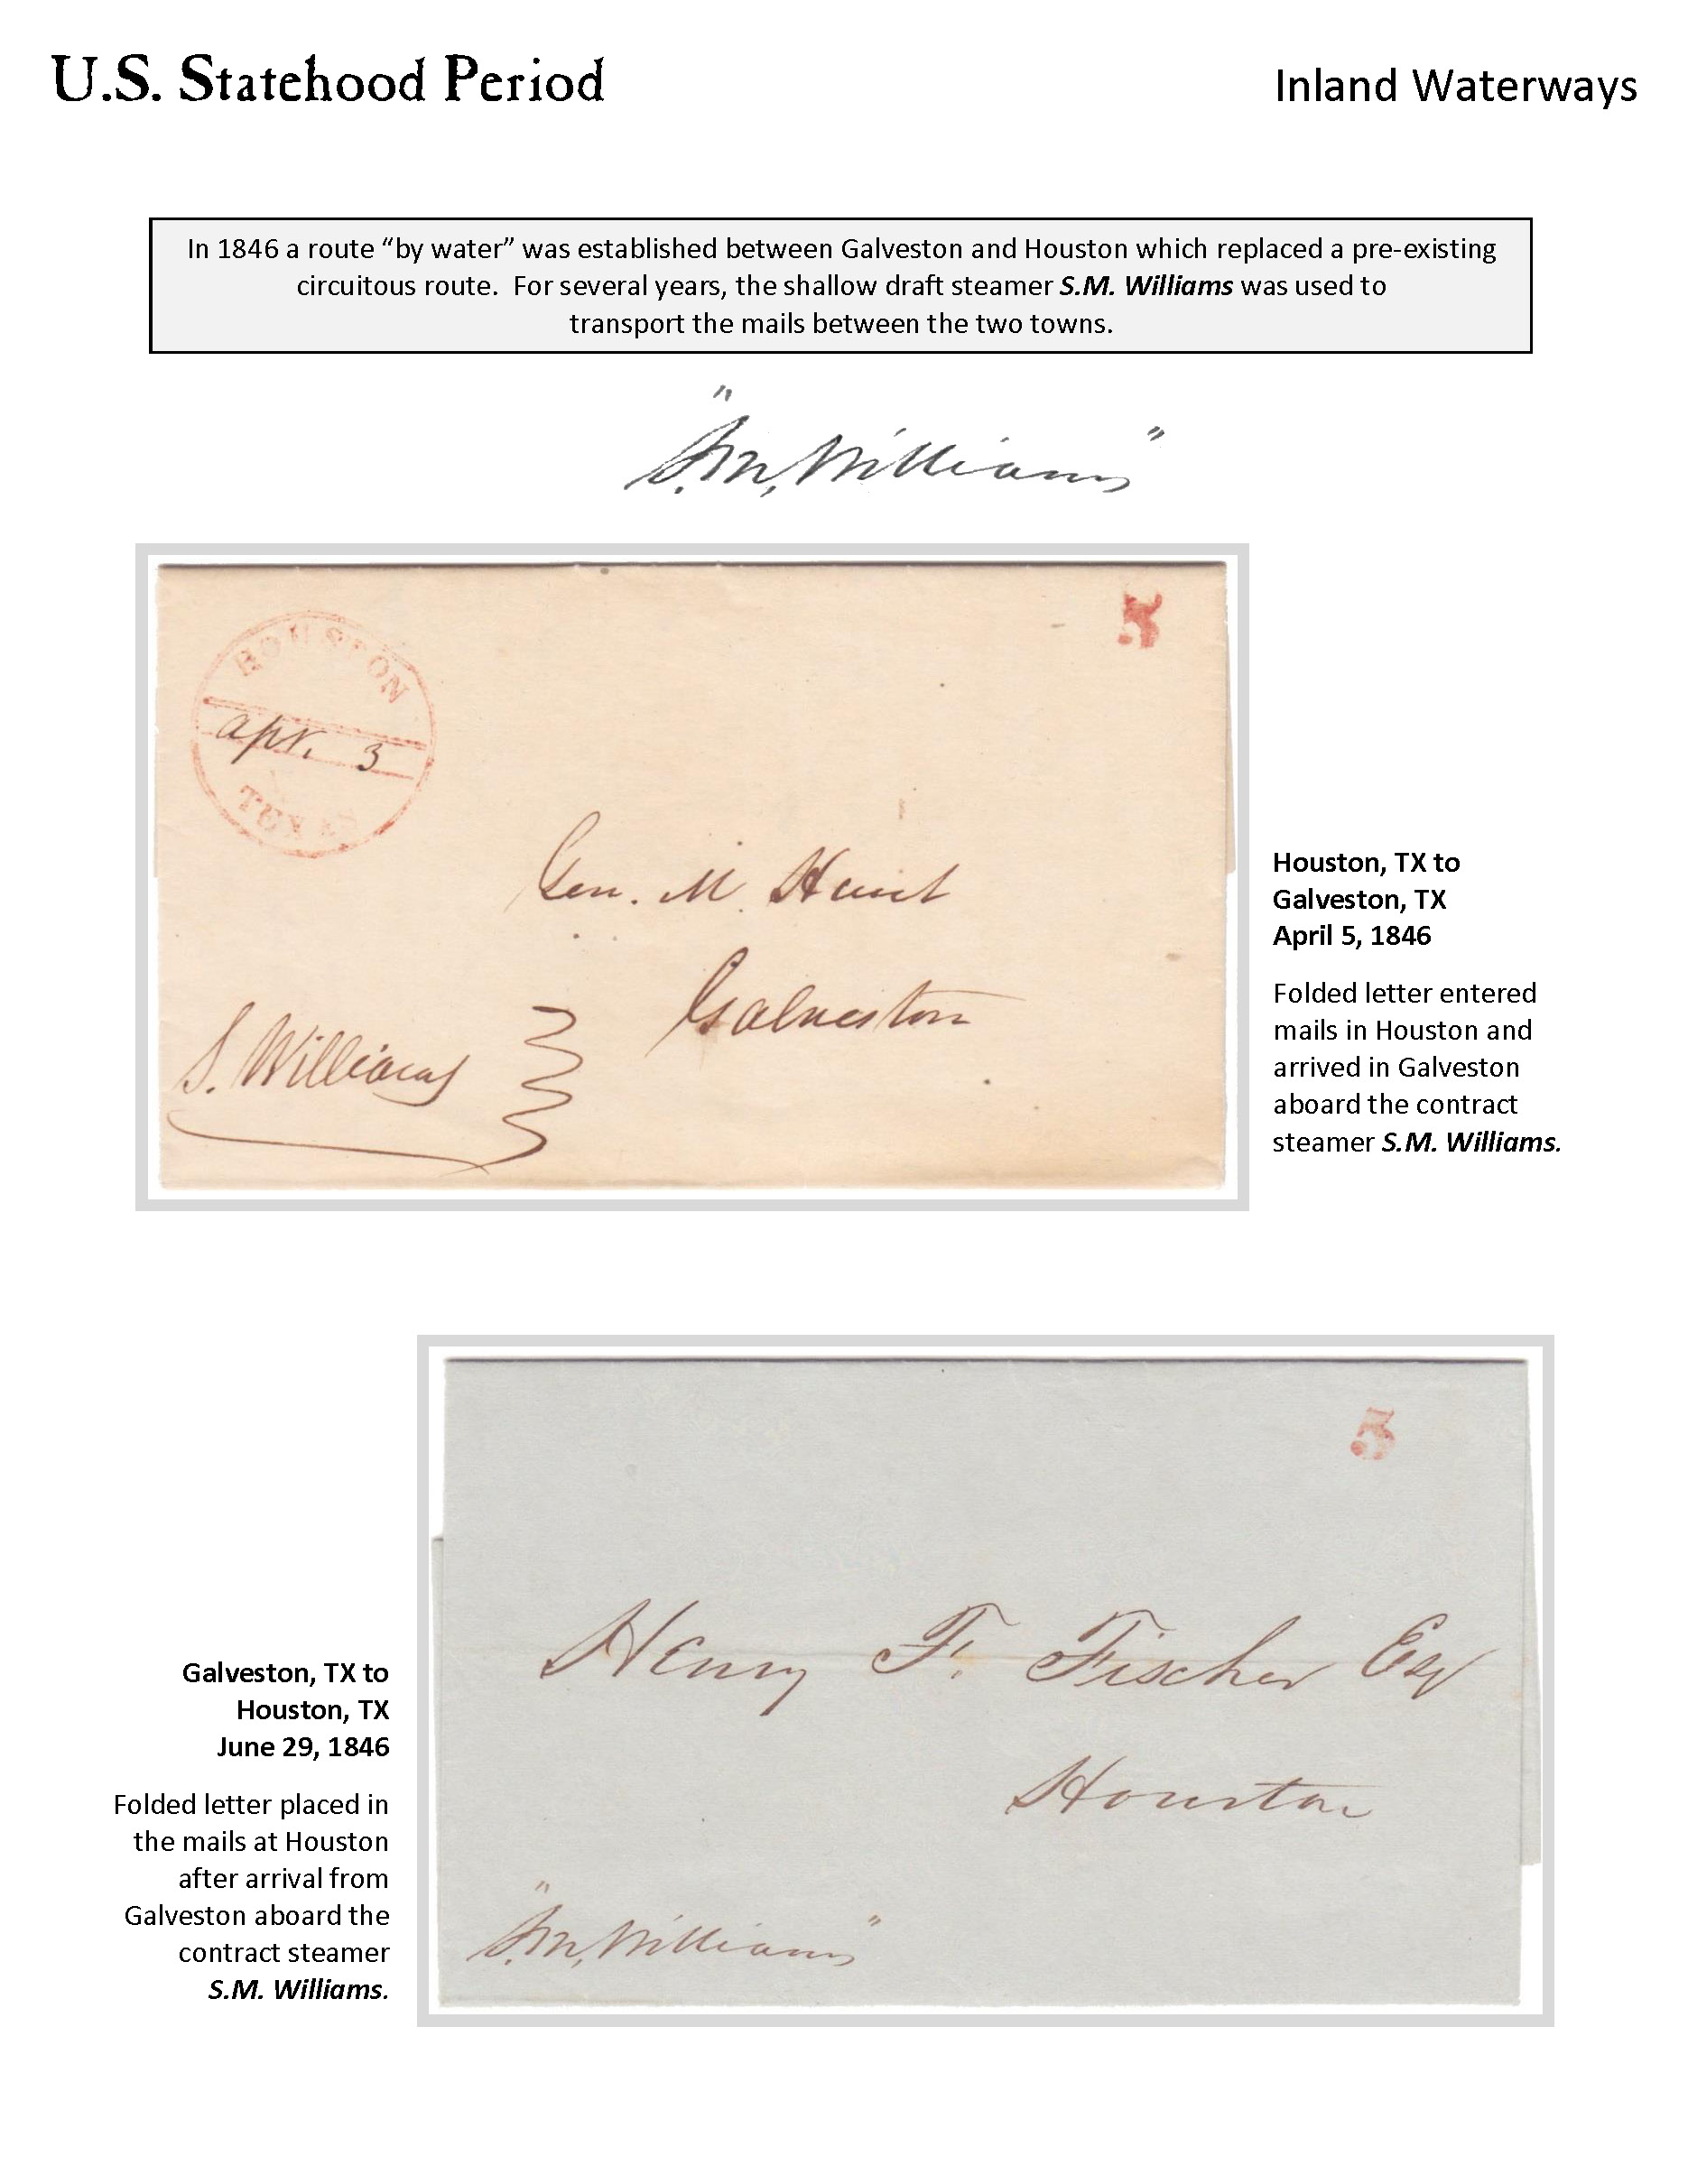 U.S. Statehood Period
Inland Waterways
In 1846 a route “by water” was established between Galveston and Houston which replaced a pre-existing
circuitous route.  For several years, the shallow draft steamer S.M. Williams was used to
transport the mails between the two towns.
"S.M, Williams"
HOUSTON
apr. 3
TEXAS
5
Gen. M. Hunt
Galveston
S. Williams
Houston, TX to
Galveston, TX
April 5, 1846
Folded letter entered
mails in Houston and
arrived in Galveston
aboard the contract
steamer S.M. Williams.
5
Henry F. Fischer Esq
Houston
"S.M, Williams"
Galveston, TX to
Houston, TX
June 29, 1846
Folded letter placed in
the mails at Houston
after arrival from
Galveston aboard the
contract steamer
S.M. Williams.